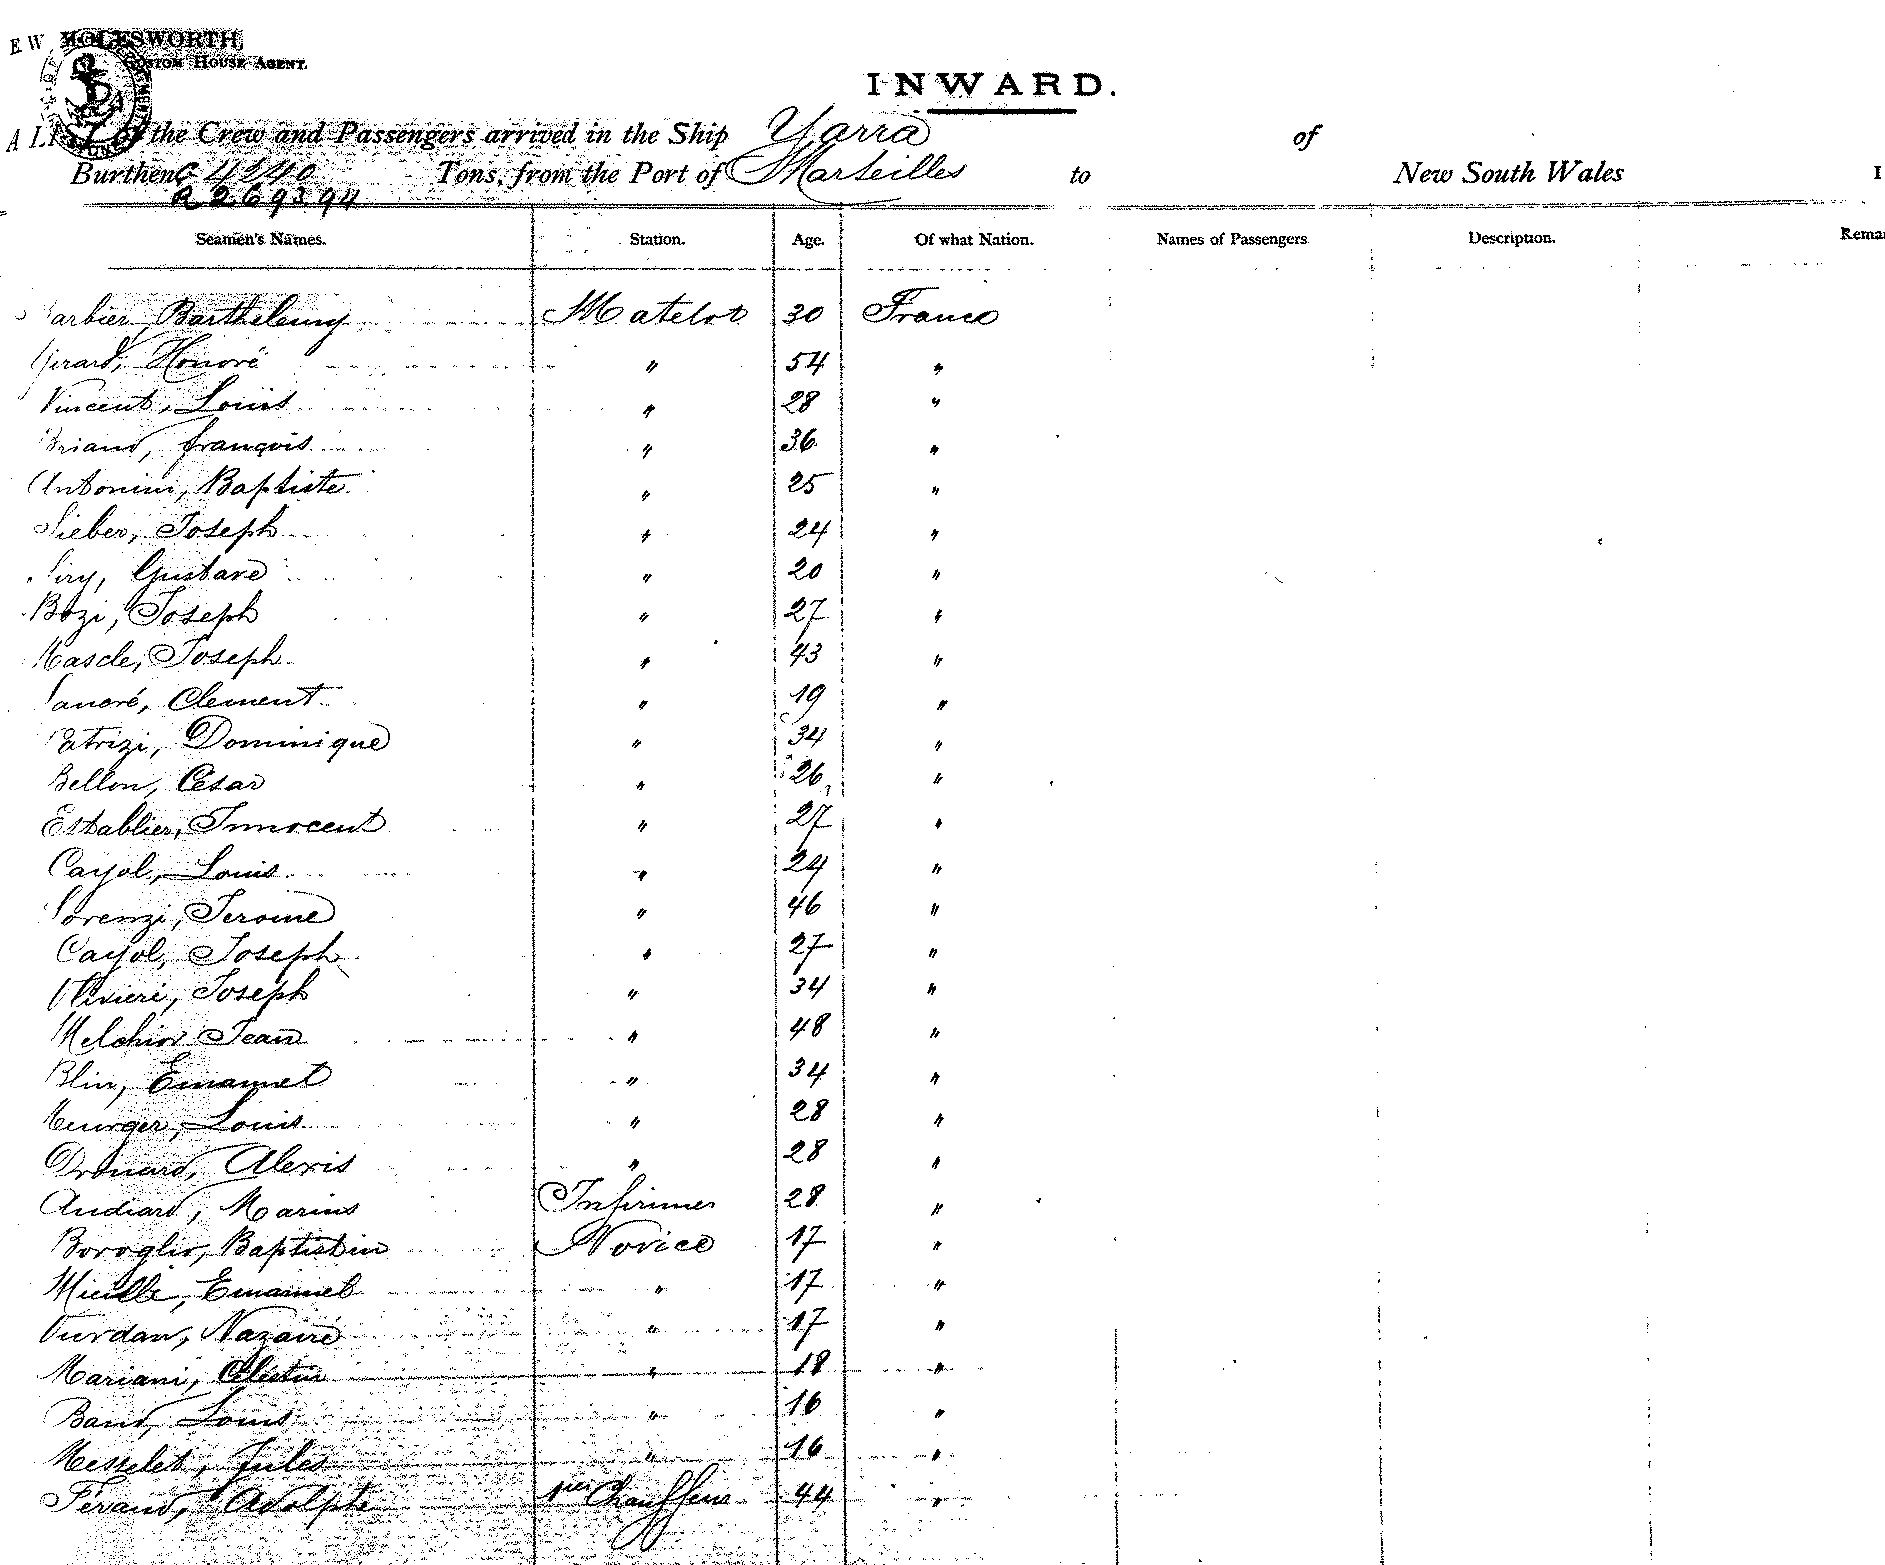 EW MOLESWORTH,
CUSTOM HOUSE AGENT.
INWARD.
A LIST of the Crew and Passengers arrived in the Ship Yarra of
Burthen 4240 Tons, from the Port of Marseilles to New South Wales
Seamen's Names. Station. Age. Of what Nation. Names of Passengers Description. Remar
arbier, Barthelemy Matelot 30 France
Girard, Honoré " 54 "
Vincent, Louis " 28 "
Briand, françois " 36 "
Antonini, Baptiste " 25 "
Sieber, Joseph " 24 "
Siry, Gustave " 20 "
Bozi, Joseph " 27 "
Mascle, Joseph " 43 "
Clement " 19 "
Patrizi, Dominique " 34 "
Bellon, César " 26 "
Establier, Innocent " 27 "
Cayol, Louis " 24 "
Lorenzi, Jerome " 46 "
Cayol, Joseph " 27 "
Olivieri, Joseph " 34 "
Melchior Jean " 48 "
Blin, Emanuel " 34 "
Meurger, Louis " 28 "
Drouard, Alexis " 28 "
Audiard, Marius Infirmier 28 "
Boroglio, Baptistin Novice 17 "
Emanuel " 17 "
Nazaire " 17 "
Mariani, Célestin " 18 "
Louis " 16 "
Messelet, Jules " 16 "
Féraud, Adolphe 1er Chauffeur 44 "